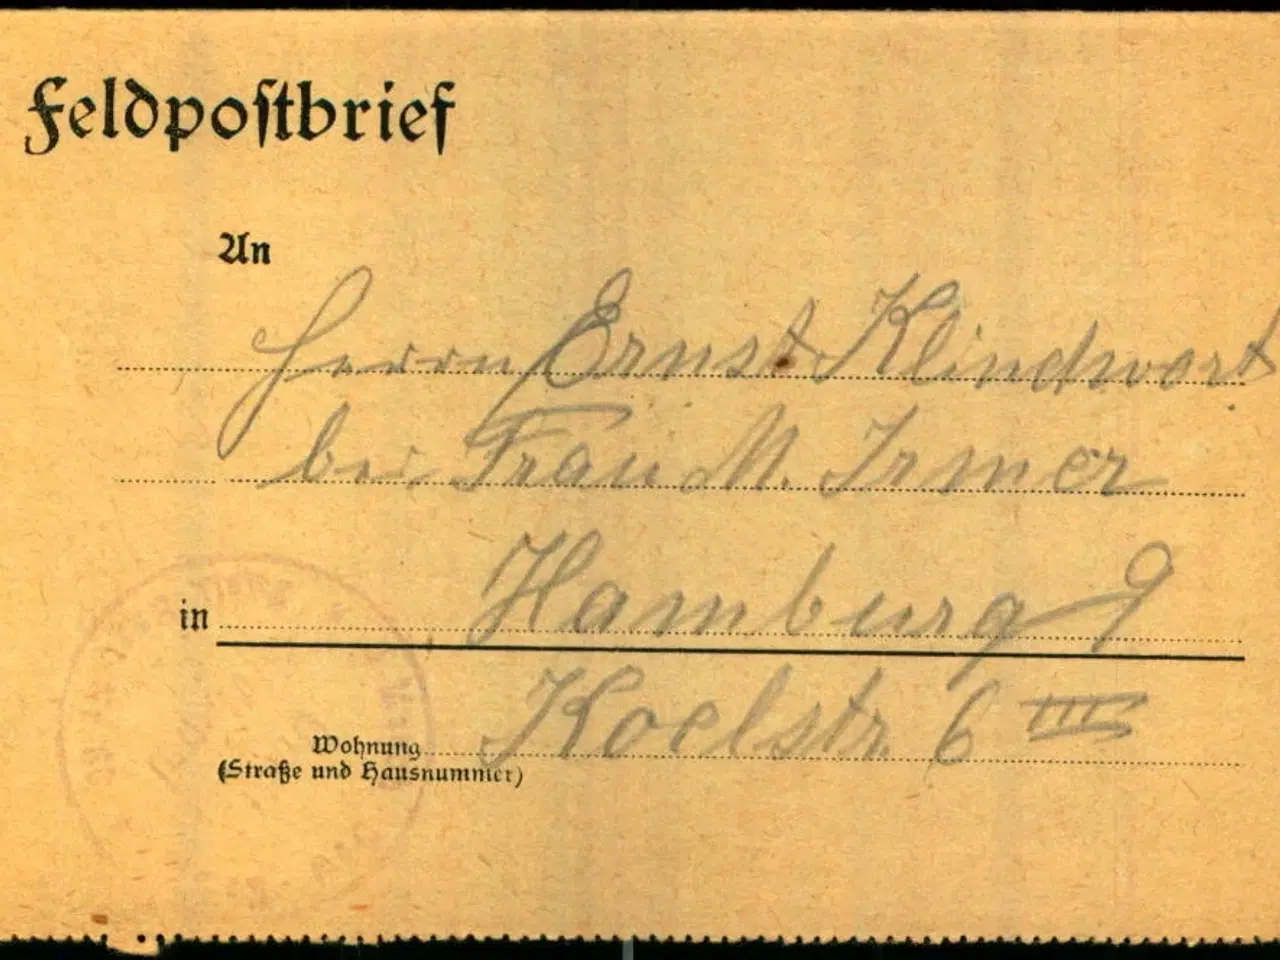 Feldpostbrief
An
Herrn Ernst Klindwort
bei Frau M. Irmer
in Hamburg 9
Koelstr. 6 III
Wohnung
(Straße und Hausnummer)